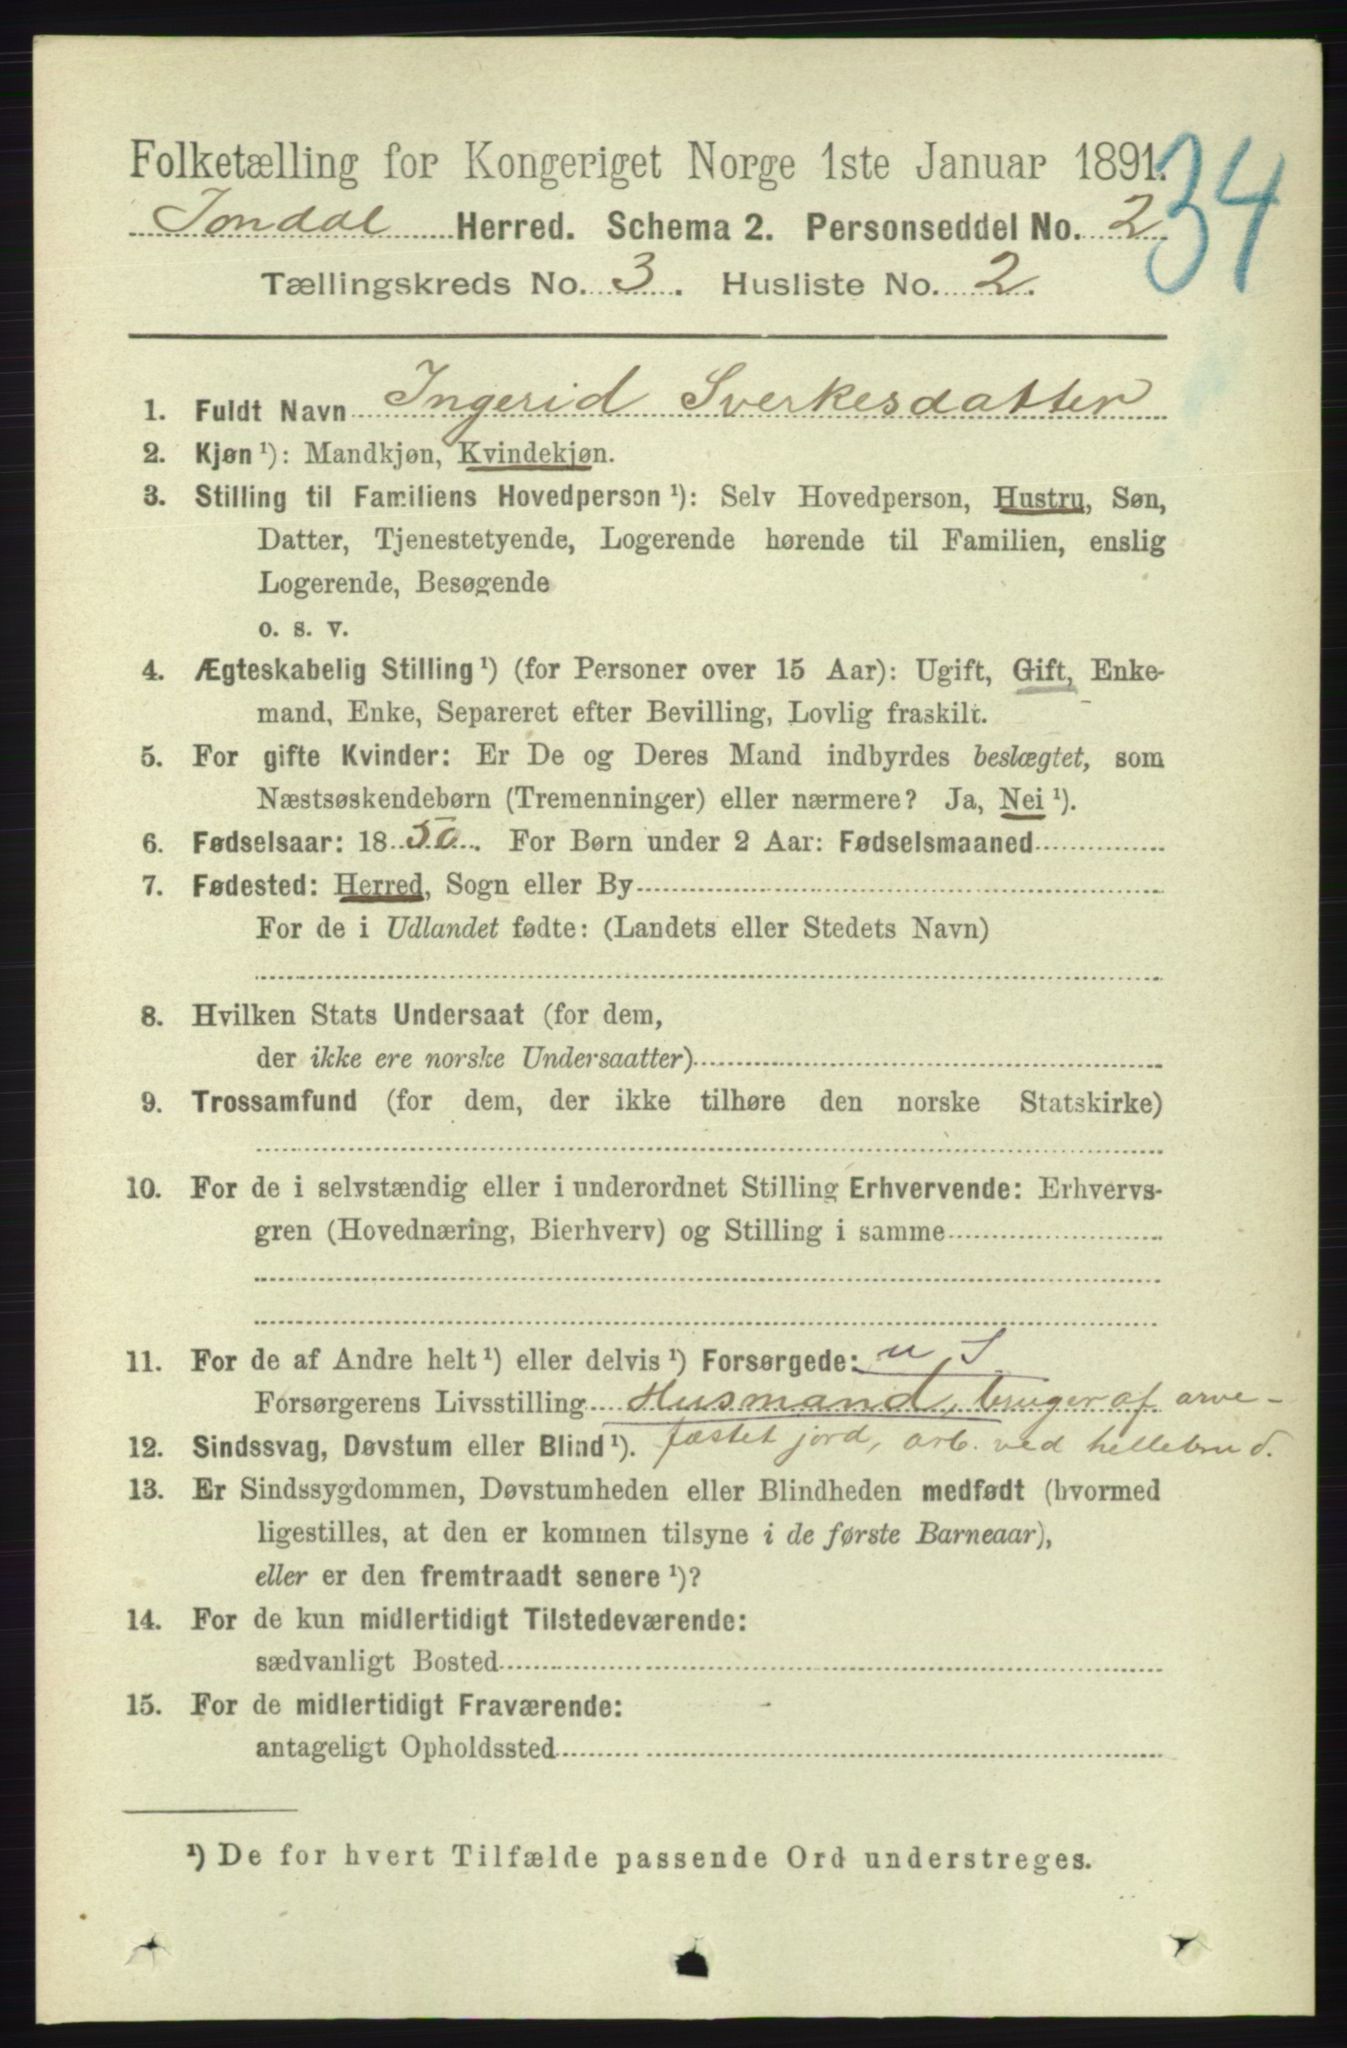 Folketælling for Kongeriget Norge 1ste Januar 1891.
34
Jondal Herred. Schema 2. Personseddel No. 2
Tællingskreds No. 3. Husliste No. 2.
1. Fuldt Navn Ingerid Sverkesdatter
2. Kjøn ¹): Mandkjøn, Kvindekjøn.
3. Stilling til Familiens Hovedperson ¹): Selv Hovedperson, Hustru, Søn,
Datter, Tjenestetyende, Logerende hørende til Familien, enslig
Logerende, Besøgende
o. s. v.
4. Ægteskabelig Stilling ¹) (for Personer over 15 Aar): Ugift, Gift, Enke-
mand, Enke, Separeret efter Bevilling, Lovlig fraskilt.
5. For gifte Kvinder: Er De og Deres Mand indbyrdes beslægtet, som
Næstsøskendebørn (Tremenninger) eller nærmere? Ja, Nei ¹).
6. Fødselsaar: 1850. For Børn under 2 Aar: Fødselsmaaned
7. Fødested: Herred, Sogn eller By
For de i Udlandet fødte: (Landets eller Stedets Navn)
8. Hvilken Stats Undersaat (for dem,
der ikke ere norske Undersaatter)
9. Trossamfund (for dem, der ikke tilhøre den norske Statskirke)
10. For de i selvstændig eller i underordnet Stilling Erhvervende: Erhvervs-
gren (Hovednæring, Bierhverv) og Stilling i samme
11. For de af Andre helt ¹) eller delvis ¹) Forsørgede: u S
Forsørgerens Livsstilling Husmand, bruger af arve-
12. Sindssvag, Døvstum eller Blind ¹). fæstet jord, arb. ved hellebrud.
13. Er Sindssygdommen, Døvstumheden eller Blindheden medfødt (hvormed
ligestilles, at den er kommen tilsyne i de første Barneaar),
eller er den fremtraadt senere ¹)?
14. For de kun midlertidigt Tilstedeværende:
sædvanligt Bosted
15. For de midlertidigt Fraværende:
antageligt Opholdssted
¹) De for hvert Tilfælde passende Ord understreges.